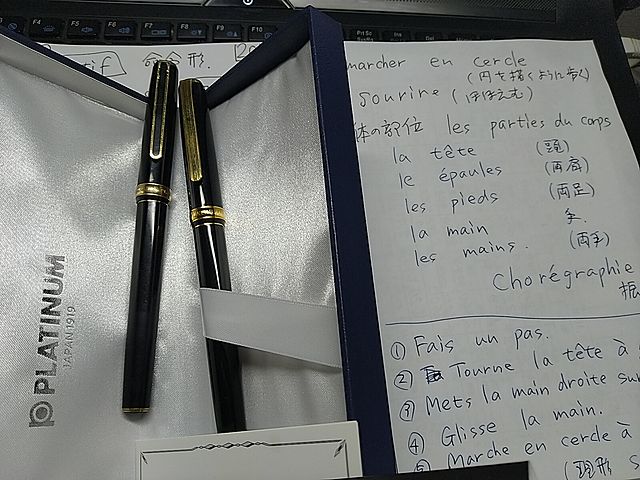 F5
F6
F7
F8
F9
F10
Prt Sc
Ins
Del
if
命令形.
PLATINUM
JAPAN 1919
marcher en cercle
(円を描くように歩く)
sourire (ほほえむ)
体の部位 les parties du corps
la tête (頭)
le épaules (両肩)
les pieds (両足)
la main 手.
les mains. (両手)
Chorégraphie
振
① Fais un pas.
② Tourne la tête à
③ Mets la main droite sur
④ Glisse la main.
⑤ Marche en cercle à